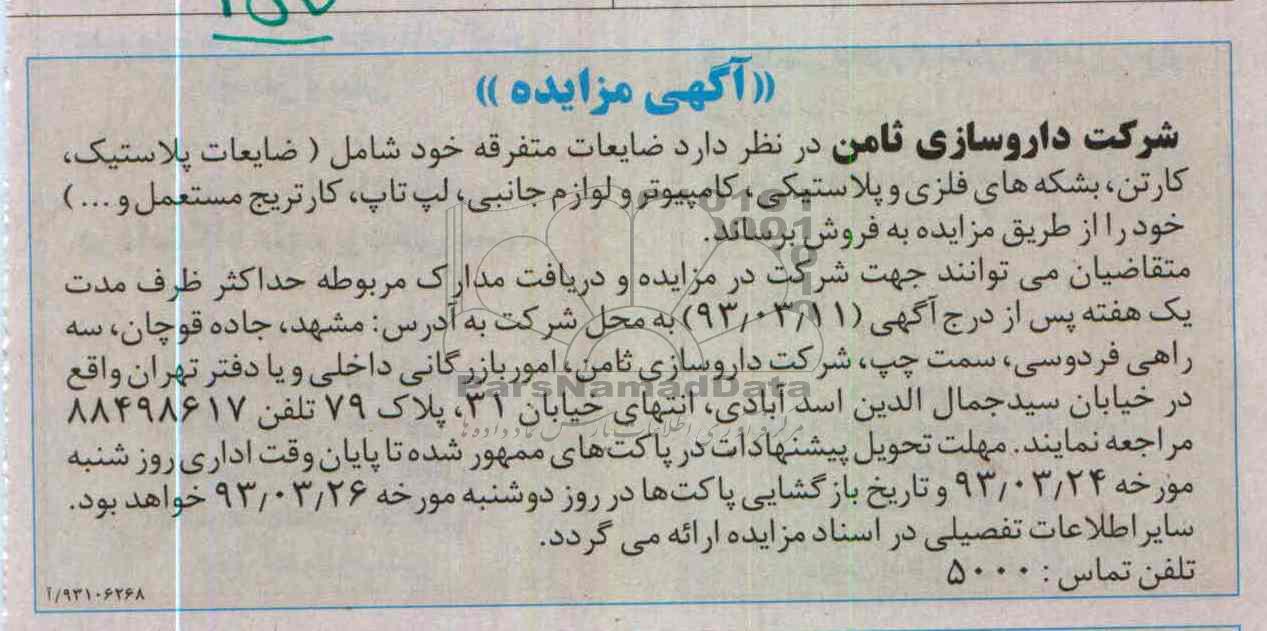 ((آگهی مزایده))
شرکت داروسازی ثامن در نظر دارد ضایعات متفرقه خود شامل ( ضایعات پلاستیک،
کارتن، بشکه های فلزی و پلاستیکی، کامپیوتر و لوازم جانبی، لپ تاپ، کارتریج مستعمل و ... )
خود را از طریق مزایده به فروش برساند.
متقاضیان می توانند جهت شرکت در مزایده و دریافت مدارک مربوطه حداکثر ظرف مدت
یک هفته پس از درج آگهی (۹۳/۰۳/۱۱) به محل شرکت به آدرس: مشهد، جاده قوچان، سه
راهی فردوسی، سمت چپ، شرکت داروسازی ثامن، امور بازرگانی داخلی و یا دفتر تهران واقع
در خیابان سیدجمال الدین اسد آبادی، انتهای خیابان ۳۱، پلاک ۷۹ تلفن ۸۸۴۹۸۶۱۷
مراجعه نمایند. مهلت تحویل پیشنهادات در پاکت‌های ممهور شده تا پایان وقت اداری روز شنبه
مورخه ۹۳/۰۳/۲۴ و تاریخ بازگشایی پاکت‌ها در روز دوشنبه مورخه ۹۳/۰۳/۲۶ خواهد بود.
سایر اطلاعات تفصیلی در اسناد مزایده ارائه می گردد.
تلفن تماس : ۵۰۰۰
۹۳۱۰۶۲۶۸/آ
ParsNamadData